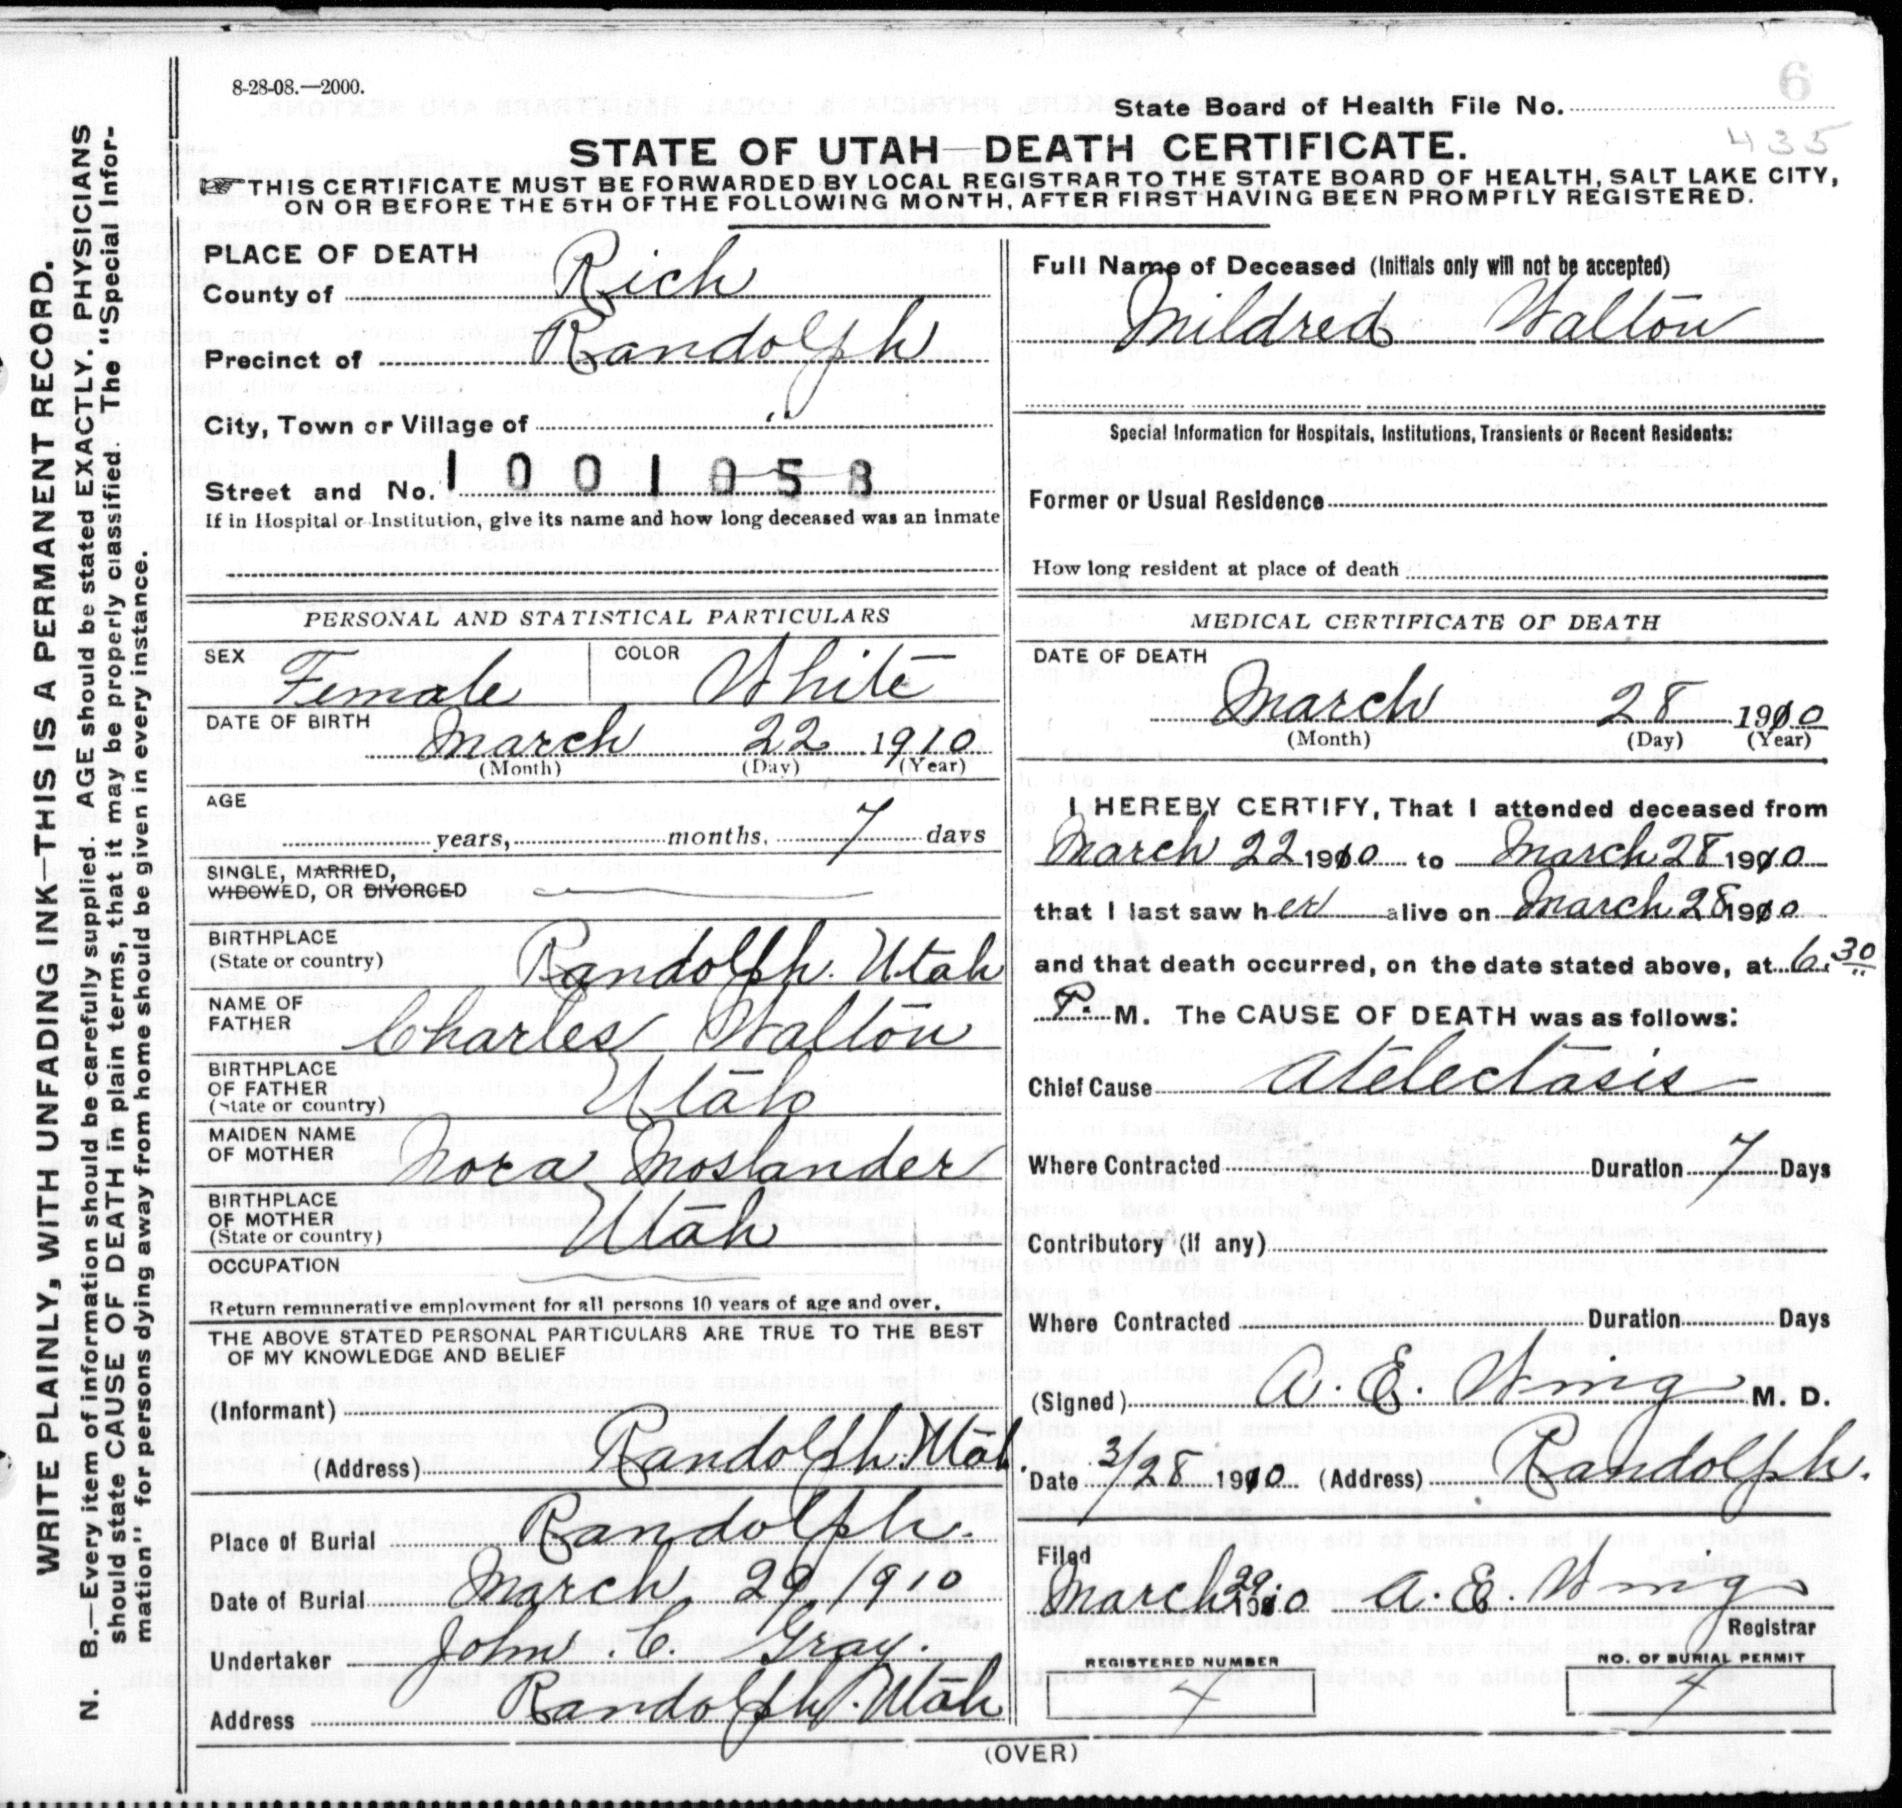 8-28-08.—2000.
6
State Board of Health File No.
435
STATE OF UTAH—DEATH CERTIFICATE.
THIS CERTIFICATE MUST BE FORWARDED BY LOCAL REGISTRAR TO THE STATE BOARD OF HEALTH, SALT LAKE CITY,
ON OR BEFORE THE 5TH OF THE FOLLOWING MONTH, AFTER FIRST HAVING BEEN PROMPTLY REGISTERED.
WRITE PLAINLY, WITH UNFADING INK—THIS IS A PERMANENT RECORD.
N. B.—Every item of information should be carefully supplied. AGE should be stated EXACTLY. PHYSICIANS
should state CAUSE OF DEATH in plain terms, that it may be properly classified. The "Special Infor-
mation" for persons dying away from home should be given in every instance.
PLACE OF DEATH
County of Rich
Precinct of Randolph
City, Town or Village of "
Street and No. 1001058
If in Hospital or Institution, give its name and how long deceased was an inmate
PERSONAL AND STATISTICAL PARTICULARS
SEX Female COLOR White
DATE OF BIRTH
March 22 1910
(Month) (Day) (Year)
AGE
years, months, 7 days
SINGLE, MARRIED,
WIDOWED, OR DIVORCED
BIRTHPLACE
(State or country) Randolph. Utah
NAME OF
FATHER Charles Walton
BIRTHPLACE
OF FATHER
(State or country) Utah
MAIDEN NAME
OF MOTHER Nora Moslander
BIRTHPLACE
OF MOTHER
(State or country) Utah
OCCUPATION
Return remunerative employment for all persons 10 years of age and over.
THE ABOVE STATED PERSONAL PARTICULARS ARE TRUE TO THE BEST
OF MY KNOWLEDGE AND BELIEF
(Informant)
(Address) Randolph. Utah.
Place of Burial Randolph.
Date of Burial March 29 1910
Undertaker John. C. Gray.
Address Randolph. Utah
Full Name of Deceased (Initials only will not be accepted)
Mildred Walton
Special Information for Hospitals, Institutions, Transients or Recent Residents:
Former or Usual Residence
How long resident at place of death
MEDICAL CERTIFICATE OF DEATH
DATE OF DEATH
March 28 1910
(Month) (Day) (Year)
I HEREBY CERTIFY, That I attended deceased from
March 22 1910 to March 28 1910
that I last saw her alive on March 28 1910
and that death occurred, on the date stated above, at 6.30
P. M. The CAUSE OF DEATH was as follows:
Chief Cause Atelectasis
Where Contracted Duration 7 Days
Contributory (if any)
Where Contracted Duration Days
(Signed) A. E. Wing M. D.
Date 3/28 1910 (Address) Randolph.
Filed
March 29 1910 A. E. Wing
Registrar
REGISTERED NUMBER
4
NO. OF BURIAL PERMIT
4
(OVER)